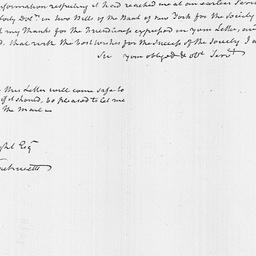 information respecting it had reached me at an earlier
Doll.s in two Bills of the Bank of New York for the Society
my Thanks for the Friendliness expressed in your Letter, and
that with the best wishes for the success of the Society I a
Sir your obliged & obt. Servt.
this Letter will come safe to
if it should, be pleased to let me
the mail
ght Esqr